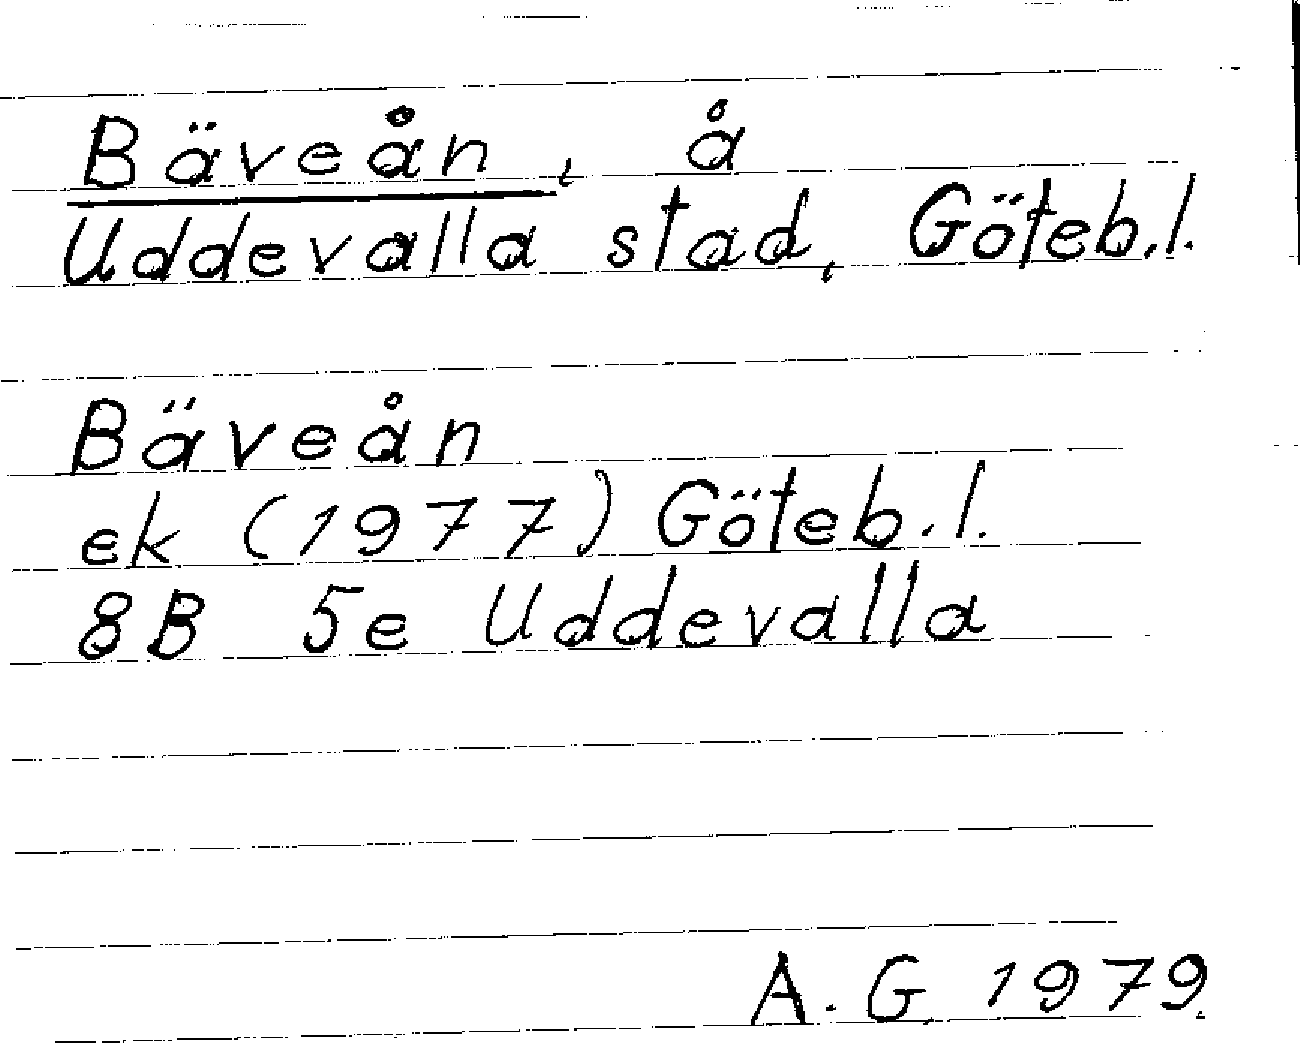 Bäveån, å
Uddevalla stad, Göteb.l.
Bäveån
ek (1977) Göteb.l.
8B 5e Uddevalla
A.G. 1979.